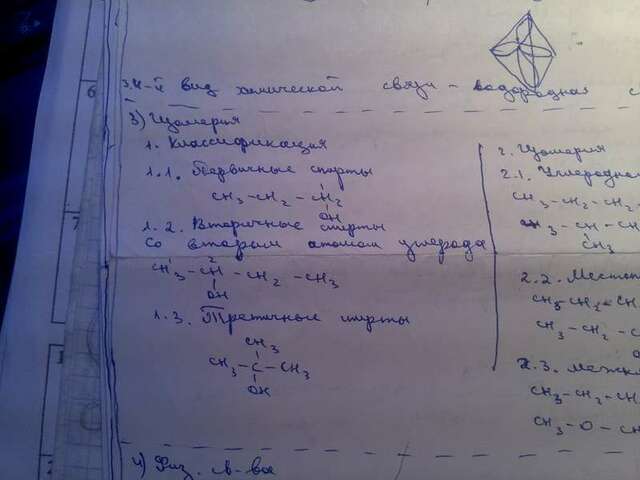 й вид химической связи - водородная с
3) Изомерия
1. Классификация
1.1. Первичные спирты
CH3-CH2-CH2
OH
1.2. Вторичные спирты
Со вторым атомом углерода
1 2
CH3-CH-CH2-CH3
OH
1.3. Третичные спирты
CH3
CH3-C-CH3
OH
4) Физ. св-ва
2. Изомерия
2.1. Углеродно
CH3-CH2-CH2-
CH3-CH-CH
CH3
2.2.
CH3-CH2-CH
CH3-CH2-C
2.3. Межкл
CH3-CH2-CH
CH3-O-CH
6
7